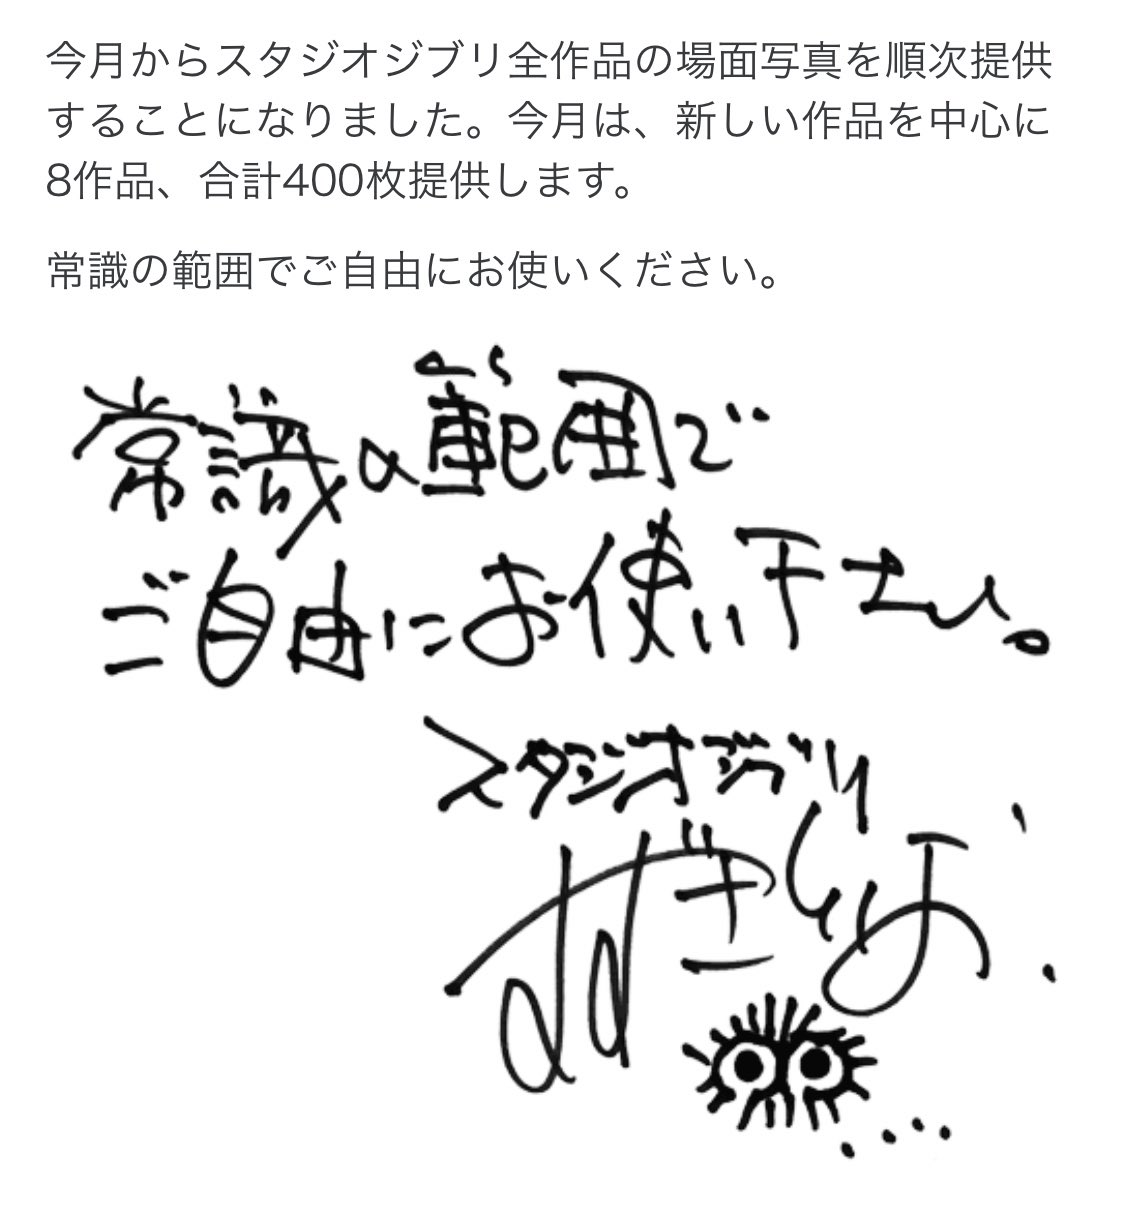 今月からスタジオジブリ全作品の場面写真を順次提供
することになりました。今月は、新しい作品を中心に
8作品、合計400枚提供します。
常識の範囲でご自由にお使いください。
常識の範囲で
ご自由にお使い下さい。
スタジオジブリ
すずきとしお